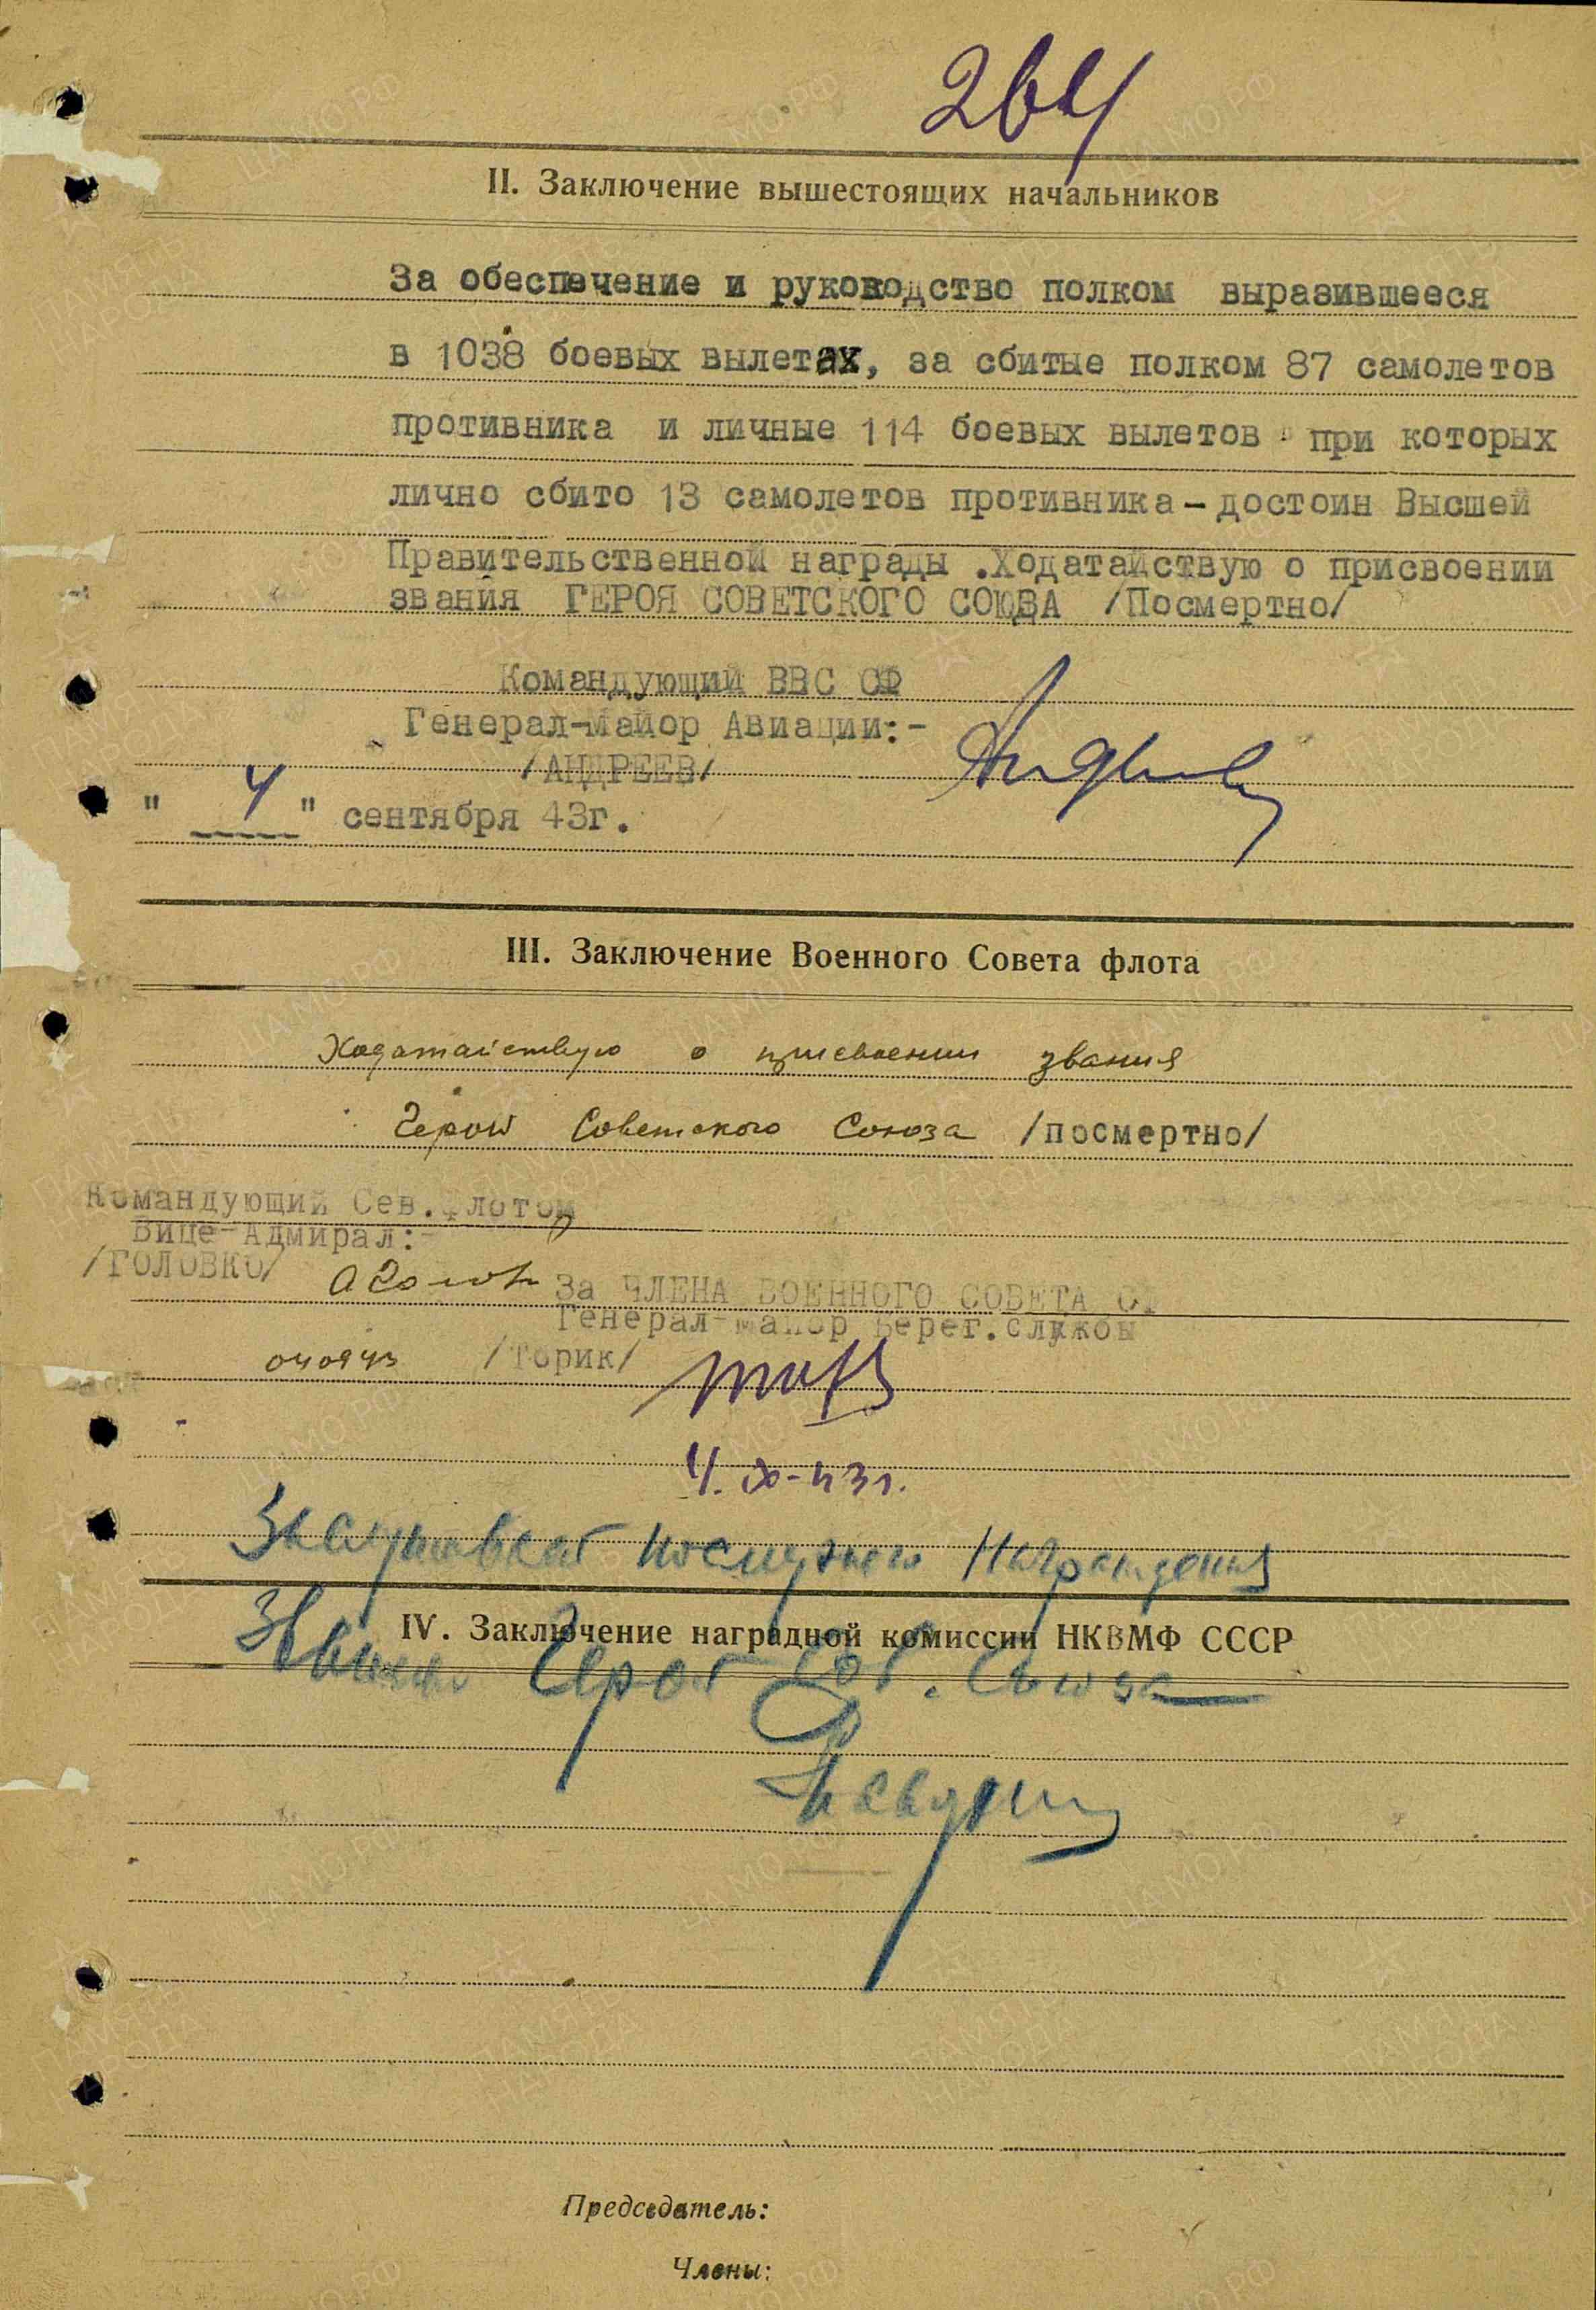 264
II. Заключение вышестоящих начальников
За обеспечение и руководство полком выразившееся
в 1038 боевых вылетах, за сбитые полком 87 самолетов
противника и личные 114 боевых вылетов при которых
лично сбито 13 самолетов противника - достоин Высшей
Правительственной награды .Ходатайствую о присвоении
звания ГЕРОЯ СОВЕТСКОГО СОЮЗА /Посмертно/
Командующий ВВС СФ
Генерал-майор Авиации:-
/АНДРЕЕВ/
" 4 " сентября 43г.
III. Заключение Военного Совета флота
Ходатайствую о присвоении звания
Героя Советского Союза /посмертно/
Командующий Сев.флотом
Вице-Адмирал:-
/ГОЛОВКО/
За ЧЛЕНА ВОЕННОГО СОВЕТА СФ
Генерал-майор Берег.службы
040943 /Торик/
4.IX-43г.
Заслуживает посмертно Награждения
IV. Заключение наградной комиссии НКВМФ СССР
Звания Героя Сов. Союза
Председатель:
Члены:
ЦАМО.РФ
ПАМЯТЬ НАРОДА